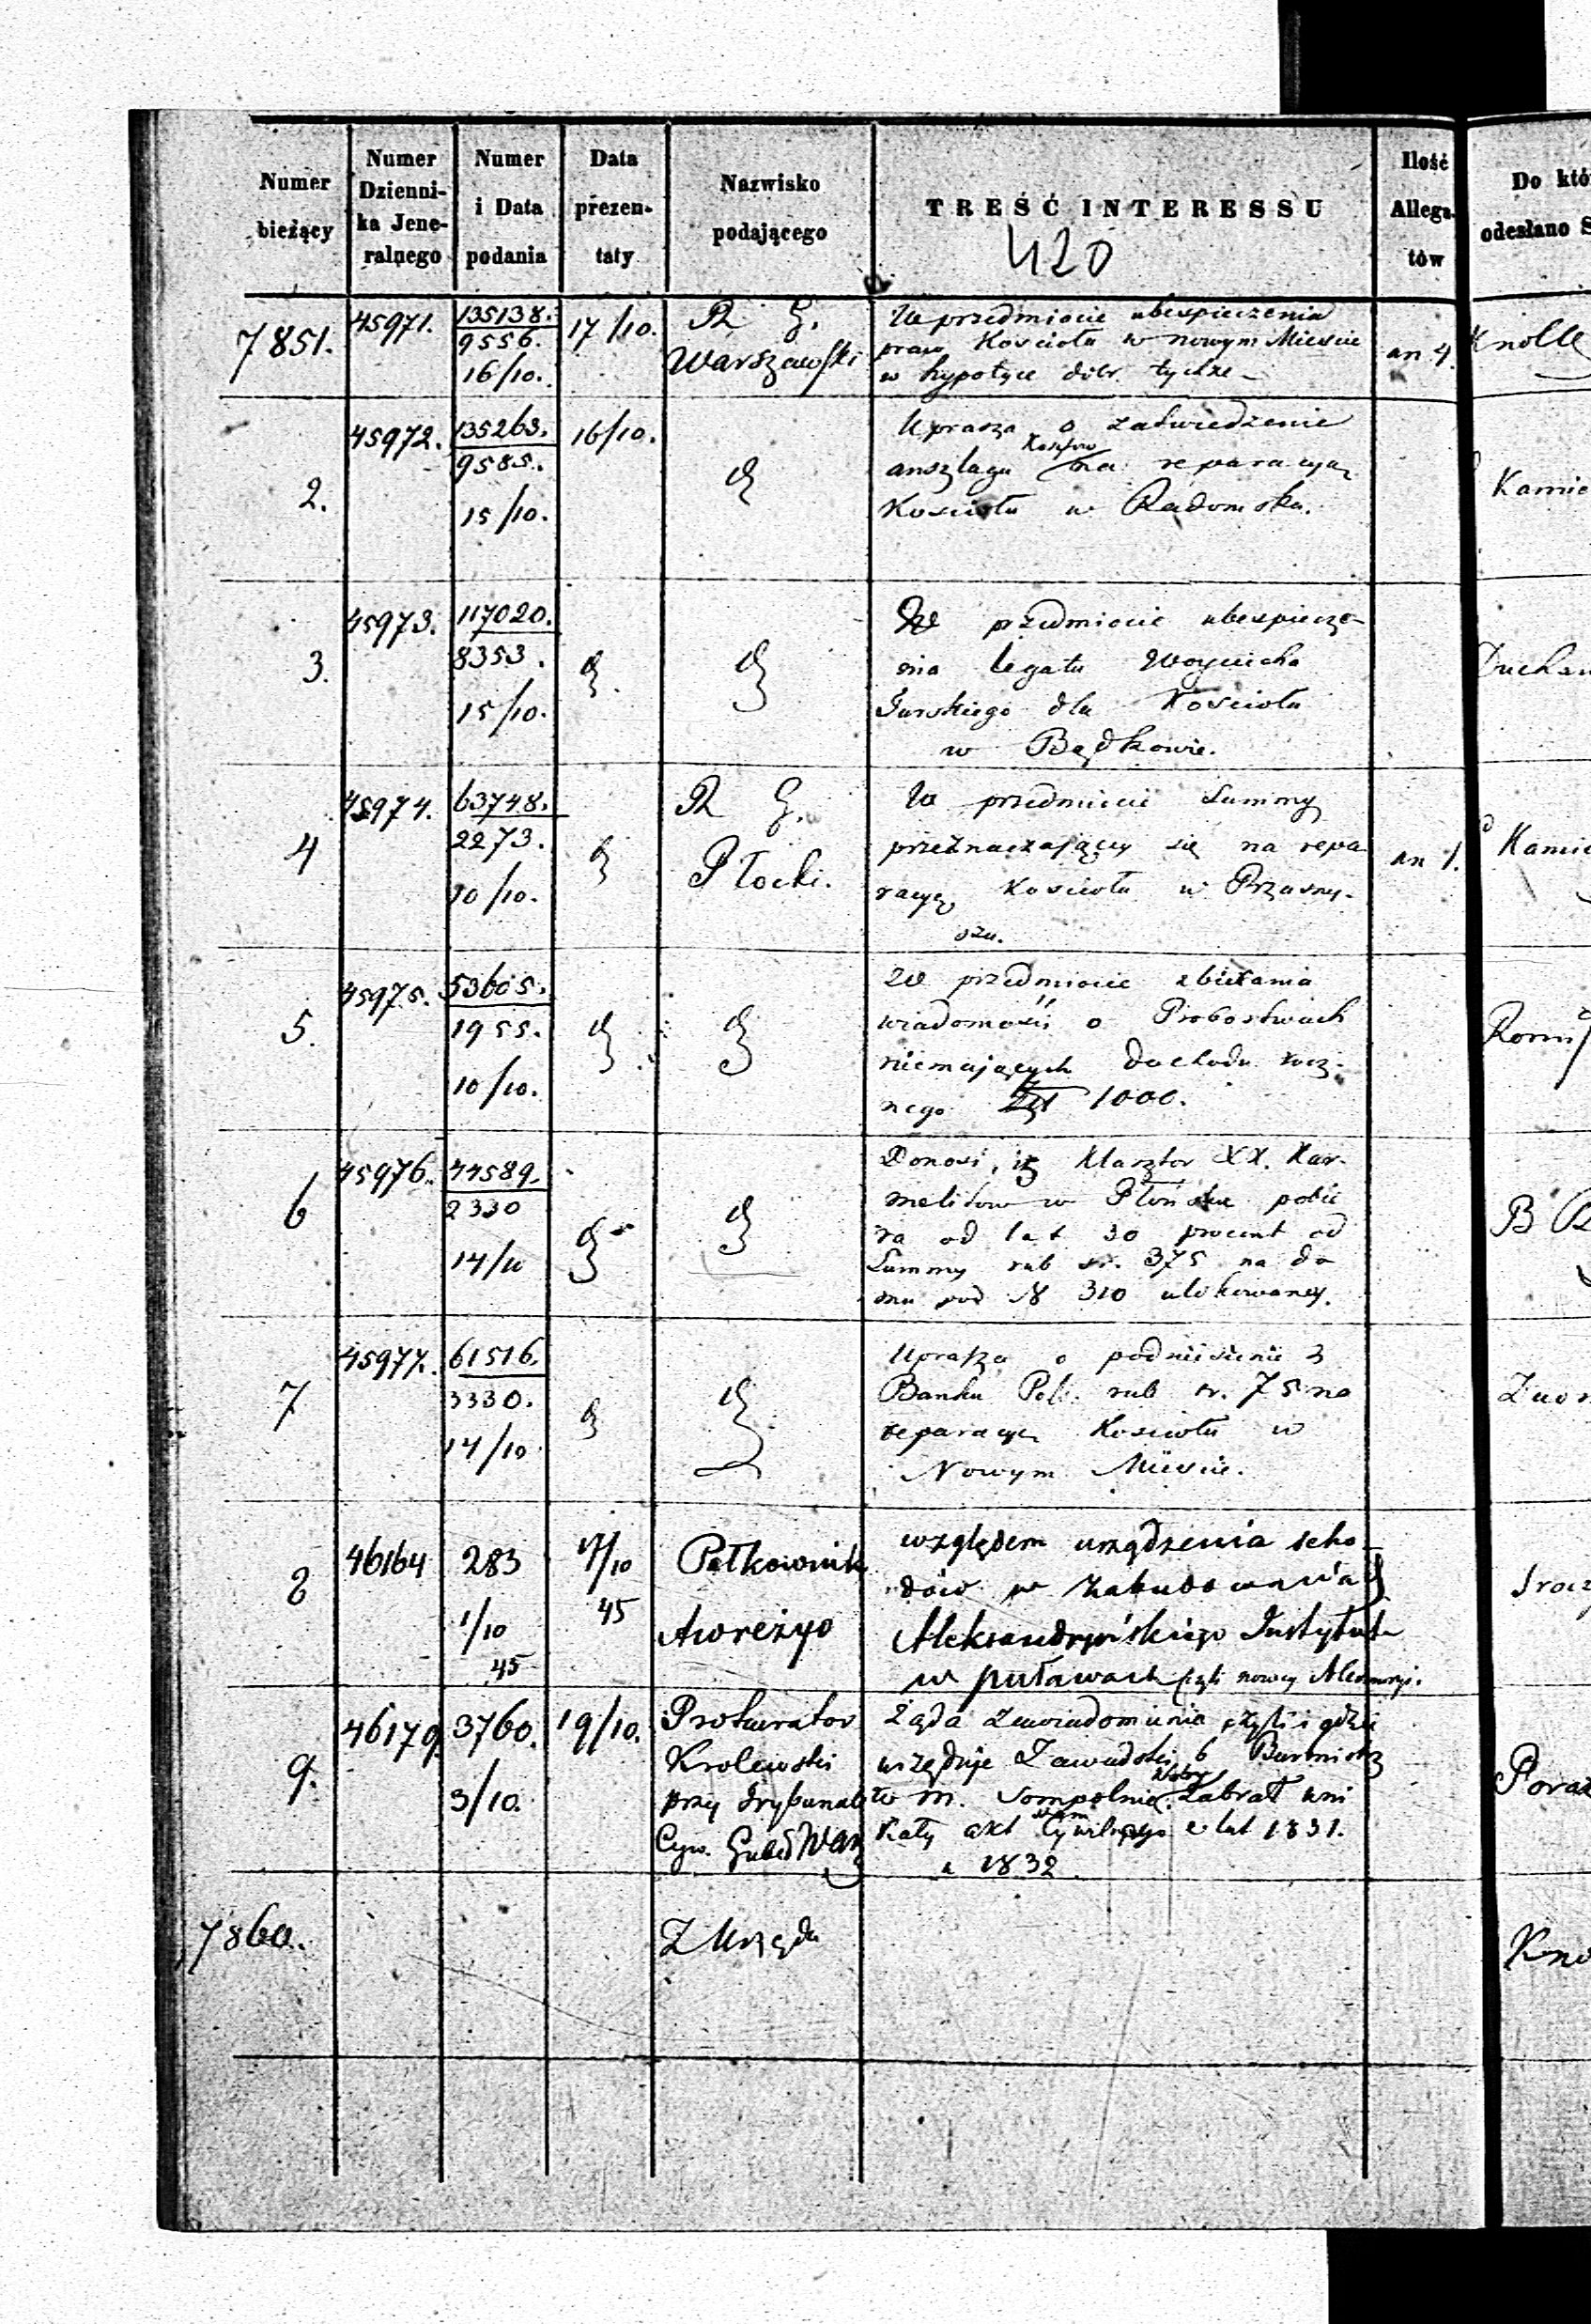 Numer bieżący
Numer Dzienni-ka Jene-ralnego
Numer i Data podania
Data prezen-taty
Nazwisko podającego
TREŚĆ INTERESSU
420
Ilość Allega-tów
Do któ
odesłano S
7851.
45971.
135138.
9556.
16/10.
17/10.
R G.
Warszawski
W przedmiocie ubespieczenia
praw Kościoła w nowym Mieście
w hypotyce dóbr tychże
an 4.
Knolle
2.
45972.
135263.
9585.
15/10.
16/10.
Uprasza o zatwierdzenie
anszlagu Kosztów na reparacyą
Kościoła w Radomsku.
Kamie
3.
45973.
117020.
8353.
15/10.
W przedmiocie ubespiecze-
nia legatu Woyciecha
Jurskiego dla Kościoła
w Będkowie.
4
45974.
63748.
2273.
10/10.
R G.
Płocki.
W przedmiocie Summy
przeznaczającey się na repa-
racyę Kościoła w Przasny-
szu.
an 1.
Kamie
5.
45975.
53605.
1955.
10/10.
W przedmiocie zbierania
wiadomości o Probostwach
niemających dochodu rocz-
nego Złt 1000.
6
45976.
44589.
2330
14/10
Donosi, iż Klasztor XX. Kar-
melitów w Płońsku pobie
ra od lat 30 procent od
Summy rub sr. 375 na do
mu pod N 310 ulokowaney.
B
7
45977.
61516.
3330.
14/10
Uprasza o podniesienie z
Banku Pol. rub sr. 75 na
reparacyą Kościoła w
Nowym Mieście.
8
46164
283
1/10
45
17/10
45
Pułkownik
Aworeżyo
względem urządzenia scho-
dów w zabudowaniach
Aleksandryńskiego Instytutu
w puławach czyli nowey Alexandryi.
9.
46179.
3760.
3/10.
19/10.
Prokurator
Królewski
przy Trybunale
Cyw. Gub Warz
Żąda zawiadomienia, czyli i gdzie
urzęduje Zawadski b Burmistrz
m. Sompolnie Zabrał uni
katy akt Cywilnego z lat 1831.
i 1832.
7860.
Z Urzędu
Kno